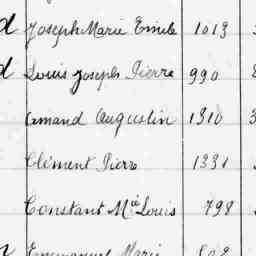 d Joseph Marie Emile 1013
d Louis Joseph Pierre 990
Armand Augustin 1310 3
Clément Pierre 1331
Constant Mie Louis 798
Emmanuel Marie